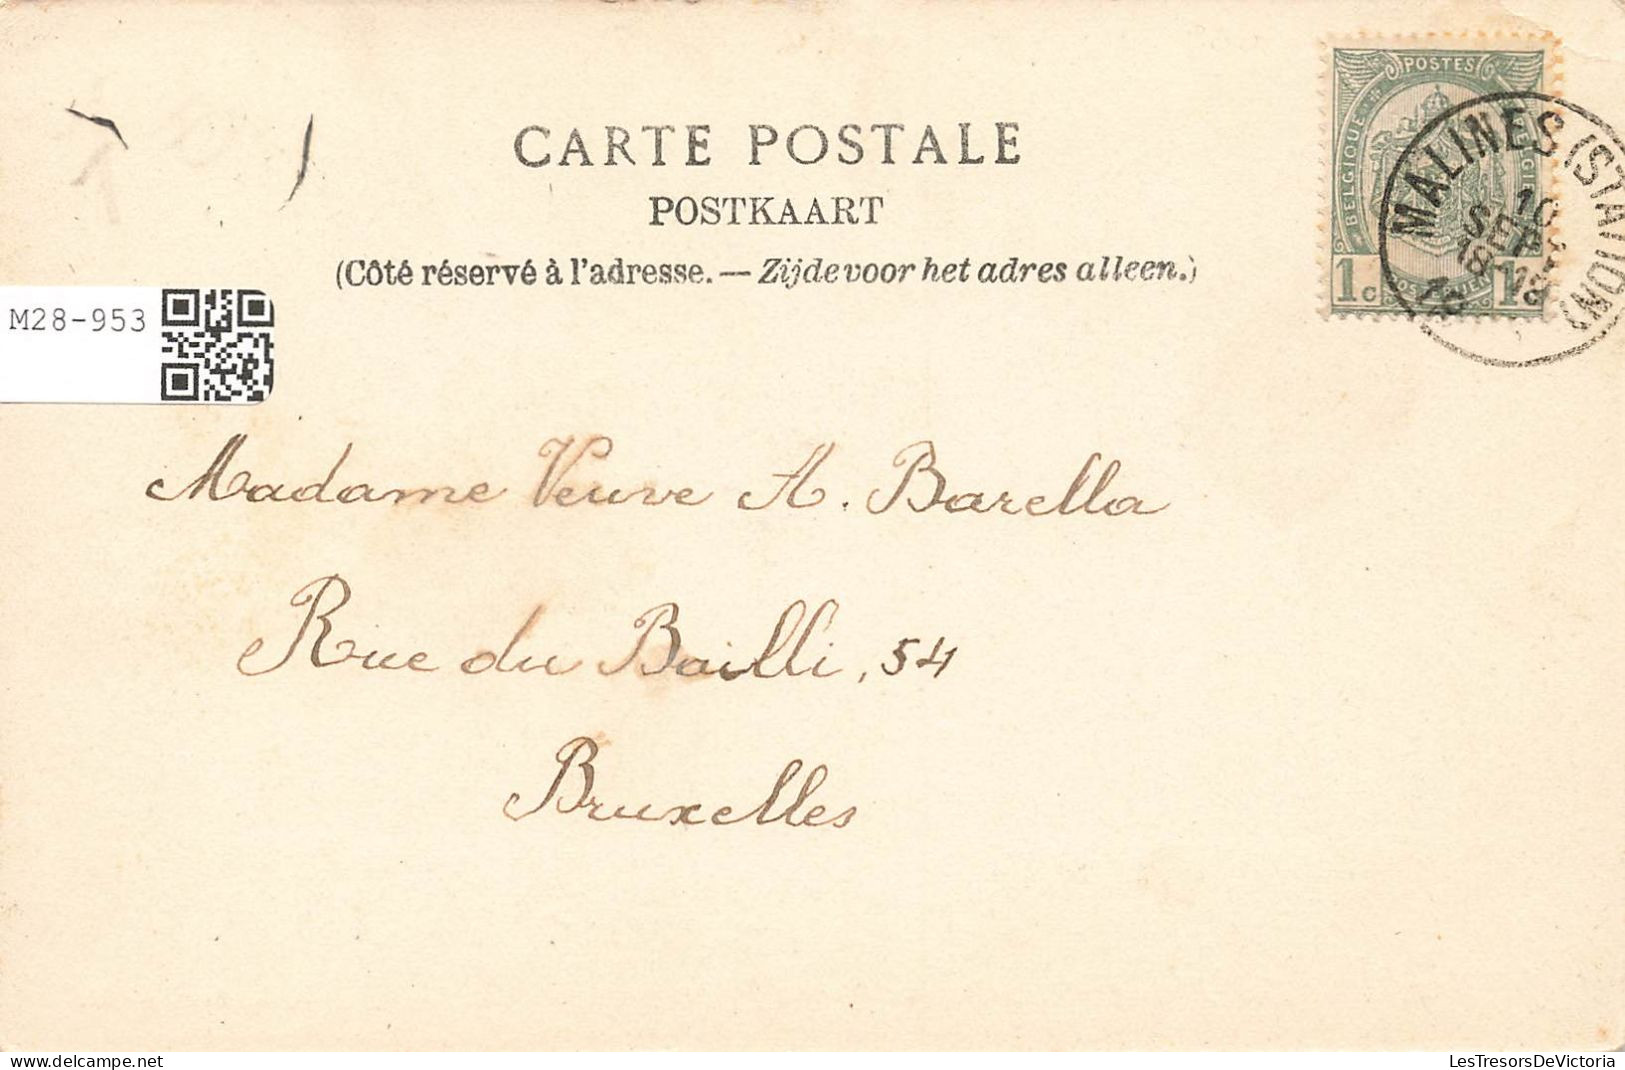 POSTES
BELGIQUE
CARTE POSTALE
MALINES (STATION)
POSTKAART
10
(Côté réservé à l'adresse. — Zijde voor het adres alleen.)
1c 1c
M28-953
Madame Veuve A. Barella
Rue du Bailli, 54
Bruxelles
LesTresorsDeVictoria
delcampe.net